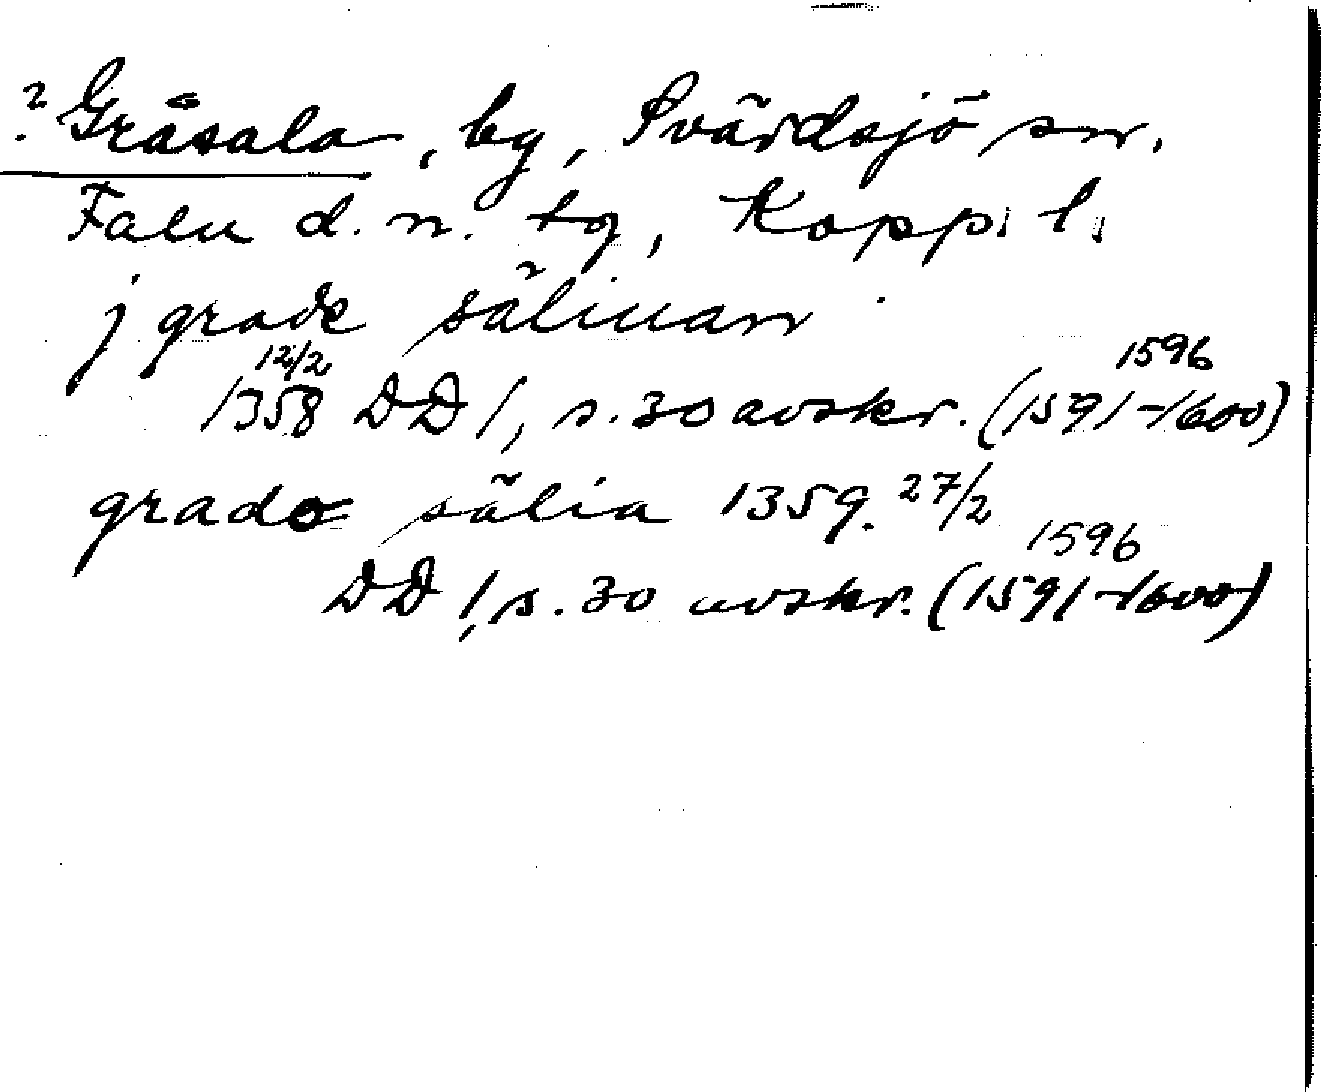 ? Gråsala, by, Svärdsjö sn.
Falu d. n. tg, Kopp. l.
j grade sälinan
12/2 1596
1358 DD 1, s. 30 avskr. (1591-1600)
grade sälia 1359. 27/2
1596
DD 1, s. 30 avskr. (1591-1600)